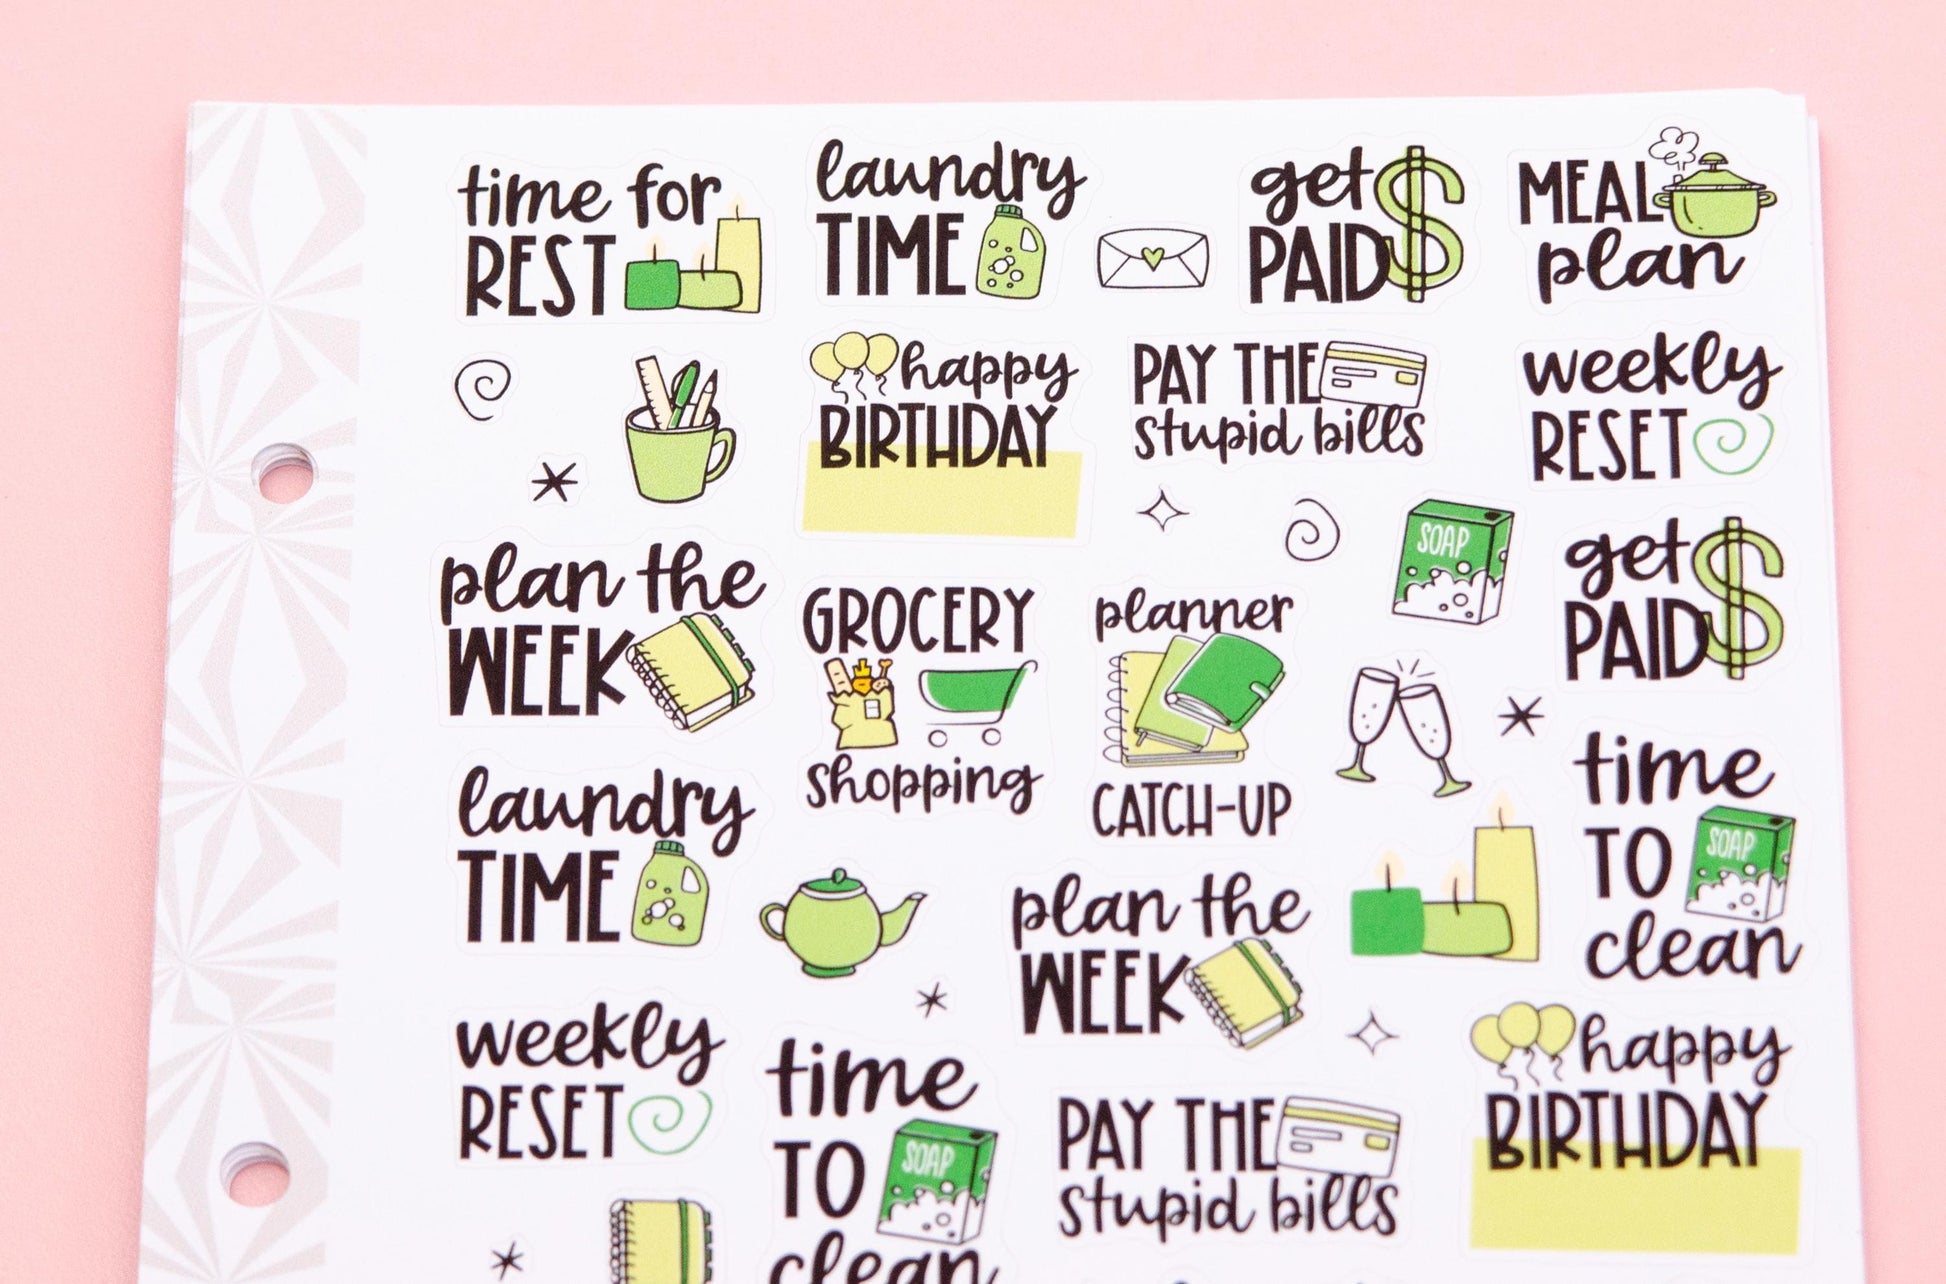 time for
REST
laundry
TIME
get
PAID
MEAL
plan
happy
BIRTHDAY
PAY THE
stupid bills
weekly
RESET
plan the
WEEK
GROCERY
shopping
planner
CATCH-UP
SOAP
get
PAID
laundry
TIME
plan the
WEEK
time
TO
SOAP
clean
weekly
RESET
time
TO
SOAP
clean
PAY THE
stupid bills
happy
BIRTHDAY